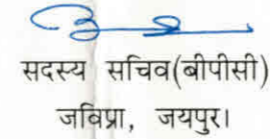 सदस्य सचिव(बीपीसी)
जविप्रा, जयपुर।